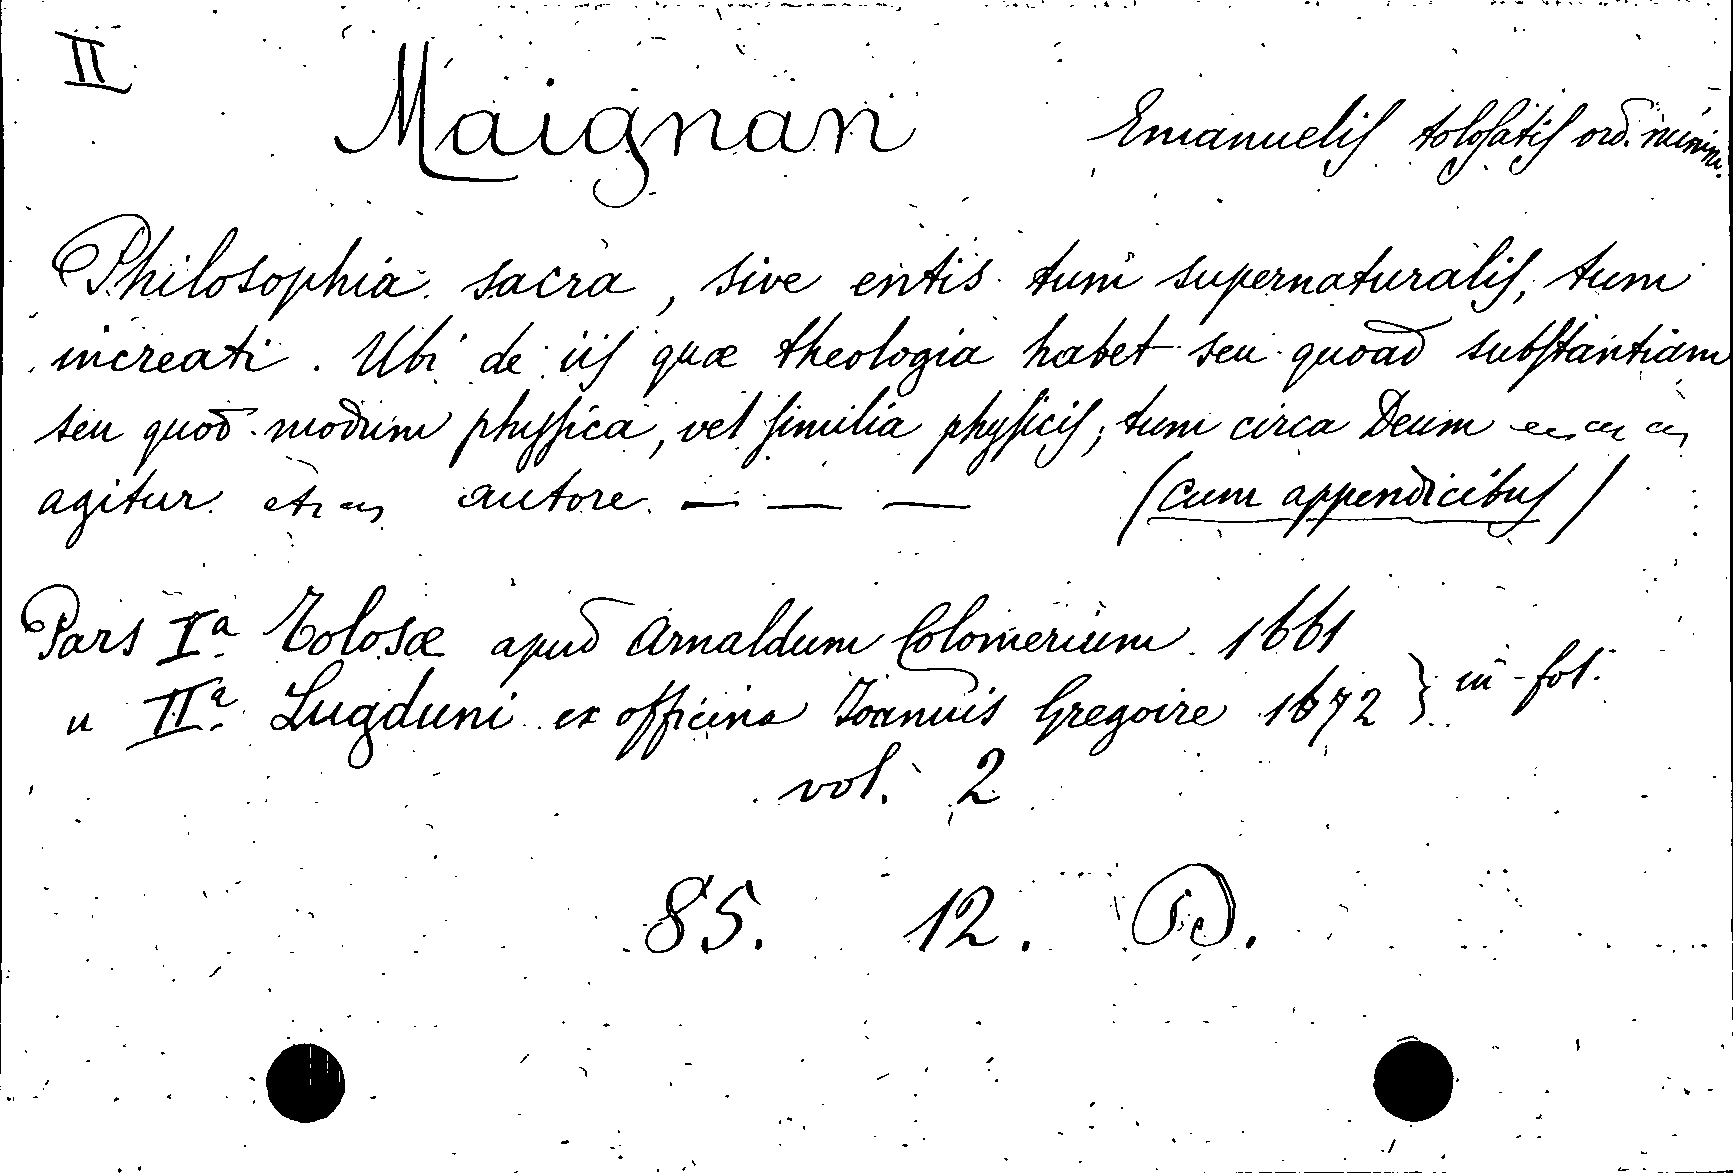 II
Maignan Emanuelis tolosatis ord. minim.
Philosophia sacra, sive entis tum supernaturalis, tum
increati. Ubi de iis quæ theologia habet seu quoad substantiam
seu quod modum physsica, vel similia physicis; tum circa Deum
agitur autore — — — (cum appendicibus)
Pars Iª Tolosæ apud Arnaldum Colomerium 1661
" IIª Lugduni ex officina Joannis Gregoire 1672 } in-fol.
vol. 2
85. 12. D.